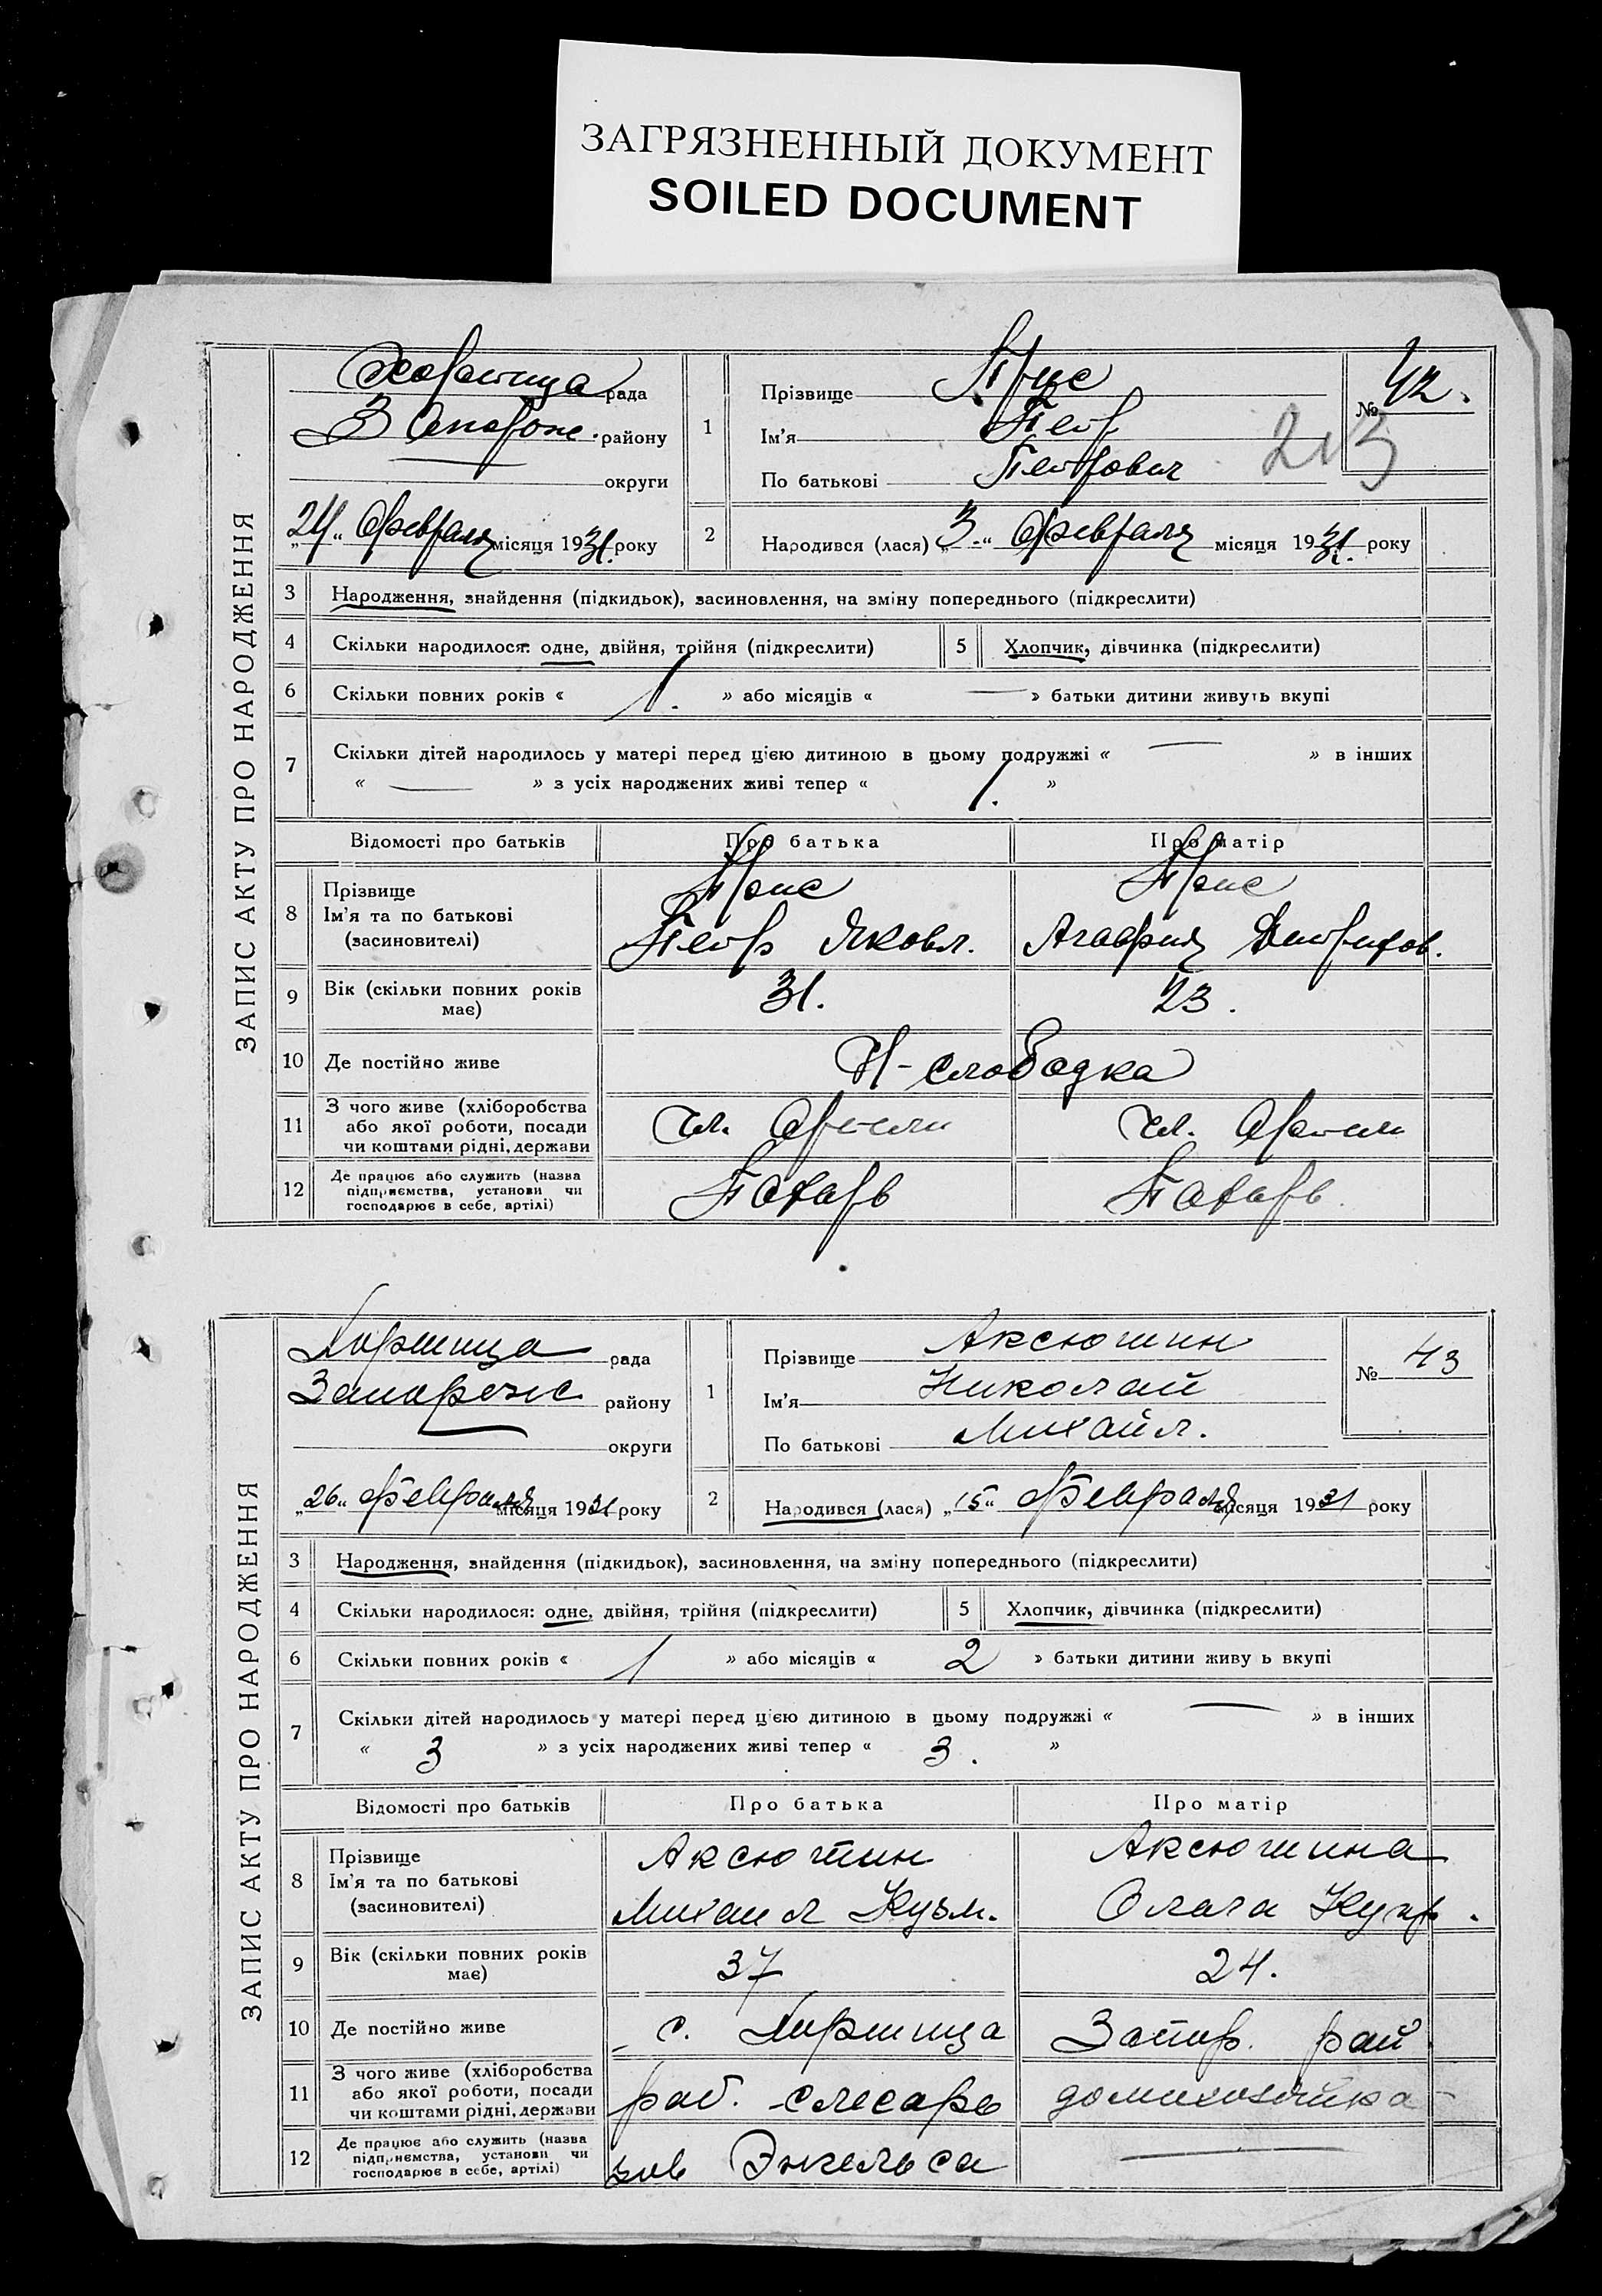 ЗАГРЯЗНЕННЫЙ ДОКУМЕНТ
SOILED DOCUMENT
ЗАПИС АКТУ ПРО НАРОДЖЕННЯ
Хортица рада
Запорож. району
округи
„24“ Февраля місяця 1931. року
1
Прізвище
Ім'я Петр
По батькові Петрович
№ 42.
213
2 Народився (лася) „3“ Февраля місяця 1931. року
3 Народження, знайдення (підкидьок), засиновлення, на зміну попереднього (підкреслити)
4 Скільки народилося: одне, двійня, трійня (підкреслити) 5 Хлопчик, дівчинка (підкреслити)
6 Скільки повних років « 1. » або місяців « — » батьки дитини живуть вкупі
7 Скільки дітей народилось у матері перед цією дитиною в цьому подружжі « — » в інших
« — » з усіх народжених живі тепер « 1. »
Відомості про батьків Про батька Про матір
8 Прізвище
Ім'я та по батькові
(засиновителі)
Петр Яковл. Агафия
9 Вік (скільки повних років має) 31. 23.
10 Де постійно живе Н-слободка
11 З чого живе (хліборобства
або якої роботи, посади
чи коштами рідні, держави
чл. Артели чл. Артели
12 Де працює або служить (назва
підприємства, установи чи
господарює в себе, артілі)
Пахарь Пахарь
ЗАПИС АКТУ ПРО НАРОДЖЕННЯ
Хортица рада
Запорож району
округи
„26“ Февраля місяця 1931 року
1
Прізвище Аксютин
Ім'я Николай
По батькові Михайл.
№ 43
2 Народився (лася) „15“ Февраля місяця 1931 року
3 Народження, знайдення (підкидьок), засиновлення, на зміну попереднього (підкреслити)
4 Скільки народилося: одне, двійня, трійня (підкреслити) 5 Хлопчик, дівчинка (підкреслити)
6 Скільки повних років « 1 » або місяців « 2 » батьки дитини живу ь вкупі
7 Скільки дітей народилось у матері перед цією дитиною в цьому подружжі « — » в інших
« 3 » з усіх народжених живі тепер « 3. »
Відомості про батьків Про батька Про матір
8 Прізвище
Ім'я та по батькові
(засиновителі)
Аксютин Аксютина
Михаил Кузм.
9 Вік (скільки повних років має) 37 24.
10 Де постійно живе с. Хортица Запор. рай
11 З чого живе (хліборобства
або якої роботи, посади
чи коштами рідні, держави
раб. слесарь домохозяйка
12 Де працює або служить (назва
підприємства, установи чи
господарює в себе, артілі)
зав Энгельса —